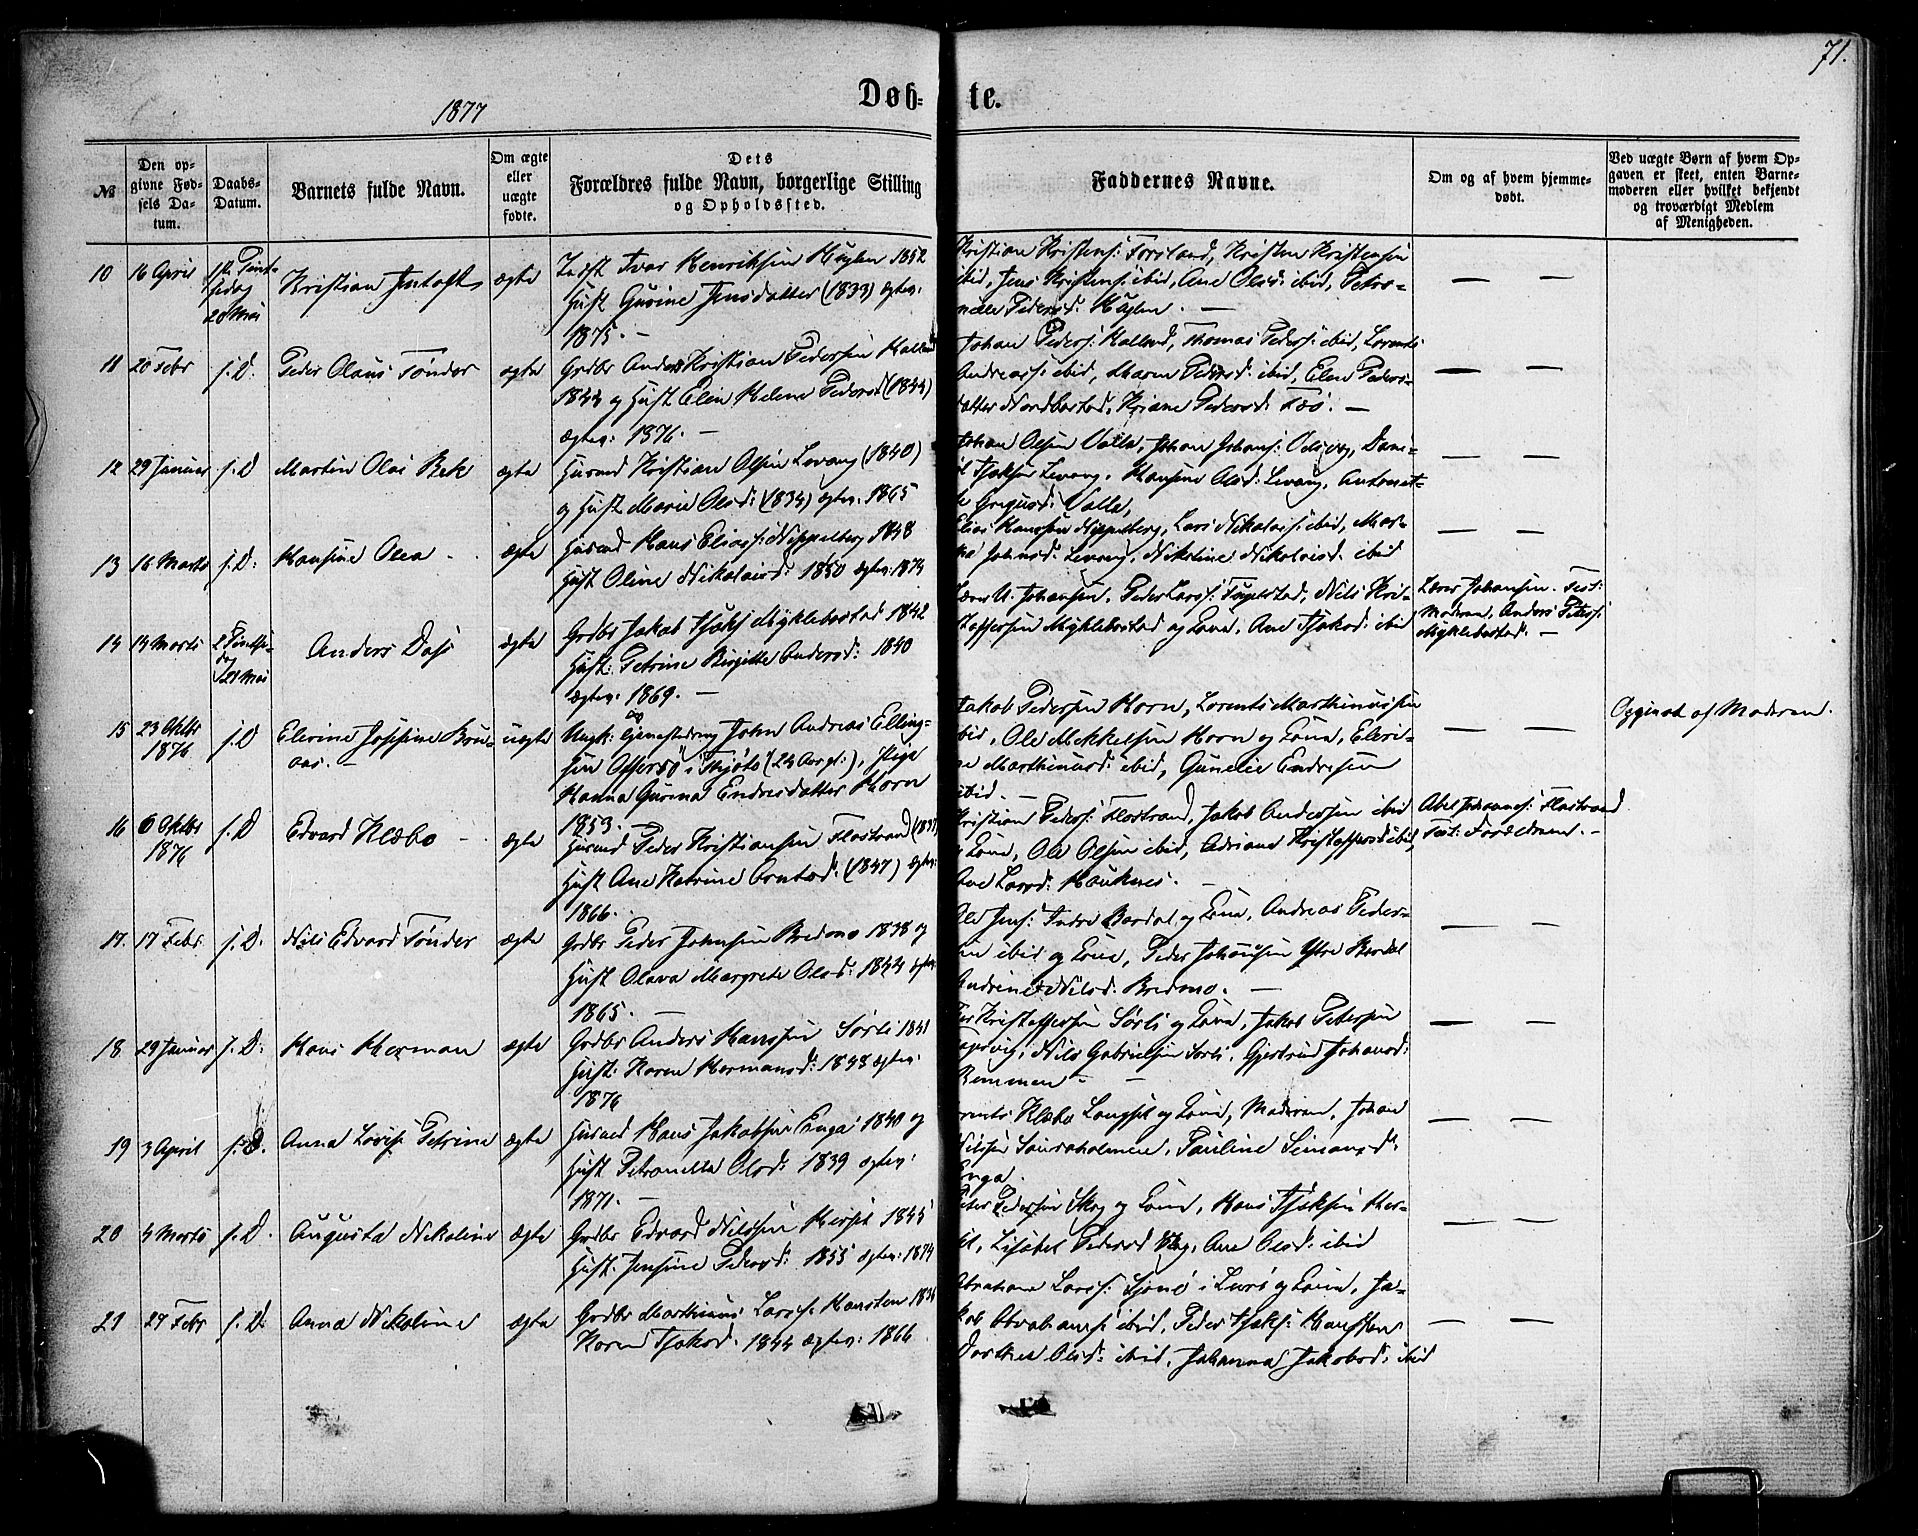 71.
1877
Døb-te.
№
Den opgivne Fødsels Datum.
Daabs-Datum.
Barnets fulde Navn.
Om ægte eller uægte fødte.
Dets Forældres fulde Navn, borgerlige Stilling og Opholdssted.
Faddernes Navne.
Om og af hvem hjemmedøbt.
Ved uægte Børn af hvem Opgaven er skeet, enten Barnemoderen eller hvilket bekjendt og troværdigt Medlem af Menigheden.
10 16 April 20 Mai Kristian ægte
Ivar Henriksen Huglen 1852
Hust Gurine Jensdatter (1833) ægtev:
1875. —
Kristian Kristens: Forsland, Kristen Kristensen
ibid, Jens Kristens: ibid, Ane Olsd: ibid, Petro-
næle Pedersd: Huglen. —
11 20 Febr s. D. Peder Olaus Tønder ægte
Grdbr Anders Kristian Pedersen
1844 og Hust Elen Helene Pedersd (1844)
ægtev: 1876. —
Johan Peders: Thomas Peders: ibid, Lorents
Andreass: ibid, Maren Pedersd: ibid, Elen Peders-
datter Nordbostad, —
12 29 Januar s. D Martin Olai Bek ægte
Husmd Kristian Olsen Levang (1840)
og Hust Marie Olsd: (1834) ægtev: 1865
Johan Olsen Valle, Johan Johans:
Levang, Hansine Olsd: Levang, Antonet-
te Gregusd: Valle,
13 16 Marts s. D: Hansine Olea ægte
Husmd Hans Eliass: Nippelberg 1848
Hust Oline Nikolaisd: 1850 ægtev: 1874
Elias Hanssen Nippelberg, Lars Nikolais: ibid, Mar-
Johnsd: Levang, Nikoline Nikolaisd: ibid
14 14 Marts 21 Mai Anders ægte
Grdbr Jakob Isaks: Myklebostad 1842
Hust: Petrine Birgitte Andersd: 1840
ægtev: 1869. —
Johansen, Peder Larss: Nils Kri-
stoffersen Myklebostad og Kona, Ane Isaksd: ibid
Johansen. Test:
Moderen, Anders Peters:
Myklebostad. —
15 23 Oktbr 1876 s. D Elerine Josefine uægte
Ungk: og Tjenestedreng John Andreas Elling-
sen Offersø i Thjøtø (24 Aar gl:), Pige
Hanna Gurina Endresdatter Horn
1853.
Jakob Pedersen Horn, Lorents Marthinussen
ibid, Ole Mikkelsen Horn og Kona, Eleri-
ne Marthinusd: ibid, Gunelie Endresen
ibid. —
Opgivet af Moderen.
16 6 Oktbr 1876 s. D Edvard Klæbo ægte
Husmd Peder Kristiansen Flostrand (1837)
Hust Ane Katrine Arntsd: (1847) ægtev:
1866.
Kristian Peders: Flostrand, Jakob Andersen ibid
og Kona, Ole Olsen ibid, Adriane Kristoffersd: ibid,
Ane Larsd: Hauknes.
Abel Johans: Flostrand
Test: Forældrene. —
17. 17 Febr. s. D. Nils Edvard Tønder ægte
Grdbr Peder Johnsen Bredmo 1838 og
Hust Olava Margrete Olsd: 1844 ægtev
1865. —
Ole Jens: Indre Bardal og Kona, Andreas Peder-
sen ibid og Kona, Peder Johansen Ytre Bardal
Andrine Nilsd: Bredmo. —
18 29 Januar s. D: Hans Herman ægte
Grdbr Anders Hanssen Sørli 1841
Hust: Karen Hermansd: 1848 ægtev:
1876
Kristoffersen Sørli og Kona, Jakob Petersen
Nils Gabrielsen Sørli, Gjertrud Johansd:
Remmen —
19 3 April s. D. Anna Lovise Petrine ægte
Husmd Hans Jakobsen Enga 1840 og
Hust Petronella Olsd: 1839 ægtev:
1871. —
Lorents Klæbo Langset og Kona, Moderen, Johan
Nilssen Sandholmen, Pauline Simonsd:
Enga.
20 4 Marts s. D. Augusta Nikoline ægte
Grdbr Edvard Nilssen 1845
Hust: Jensine Pedersd: 1855 ægtev: 1874
Peter Pedersen Skog og Kona, Hans Isaksen
Lisabet Pedersd Skog, Ane Olsd: ibid
21 27 Febr s. D: Anna Nikoline ægte
Grdbr Marthinus Larss: Hansten
Karen Isaksd: 1844 ægtev: 1866.
Abrahams Larss: Sjonø i Lurø og Kona, Ja-
kob Abrahams: ibid, Peder Isaks: Hansten
Dorthea Olsd: ibid, Johanna Jakobsd: ibid